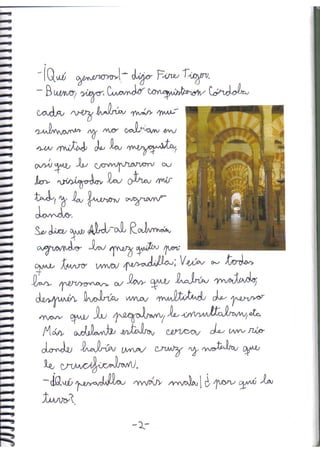 -¡Qué generosos!- dijo Fire Tiger.
- Bueno, sigo. Cuando conquistaron Córdoba
cada vez había más mu-
sulmanes y no cabían en
su mitad de la mezquita,
así que le compraron a
los visigodos la otra mi-
tad, y la fueron agran-
dando.
Se dice que Abd-al Rahmán
agrando la mezquita por
que tuvo una pesadilla: Veía a todas
las personas a las que había matado,
después había una multitud de perso
nas que le pegaban, le insultaban, etc
Más adelante estaba cerca de un río
donde había una cruz y notaba que
le crucificaban.
-¡Qué pesadilla más mala! ¿por qué la
tuvo?
-2-